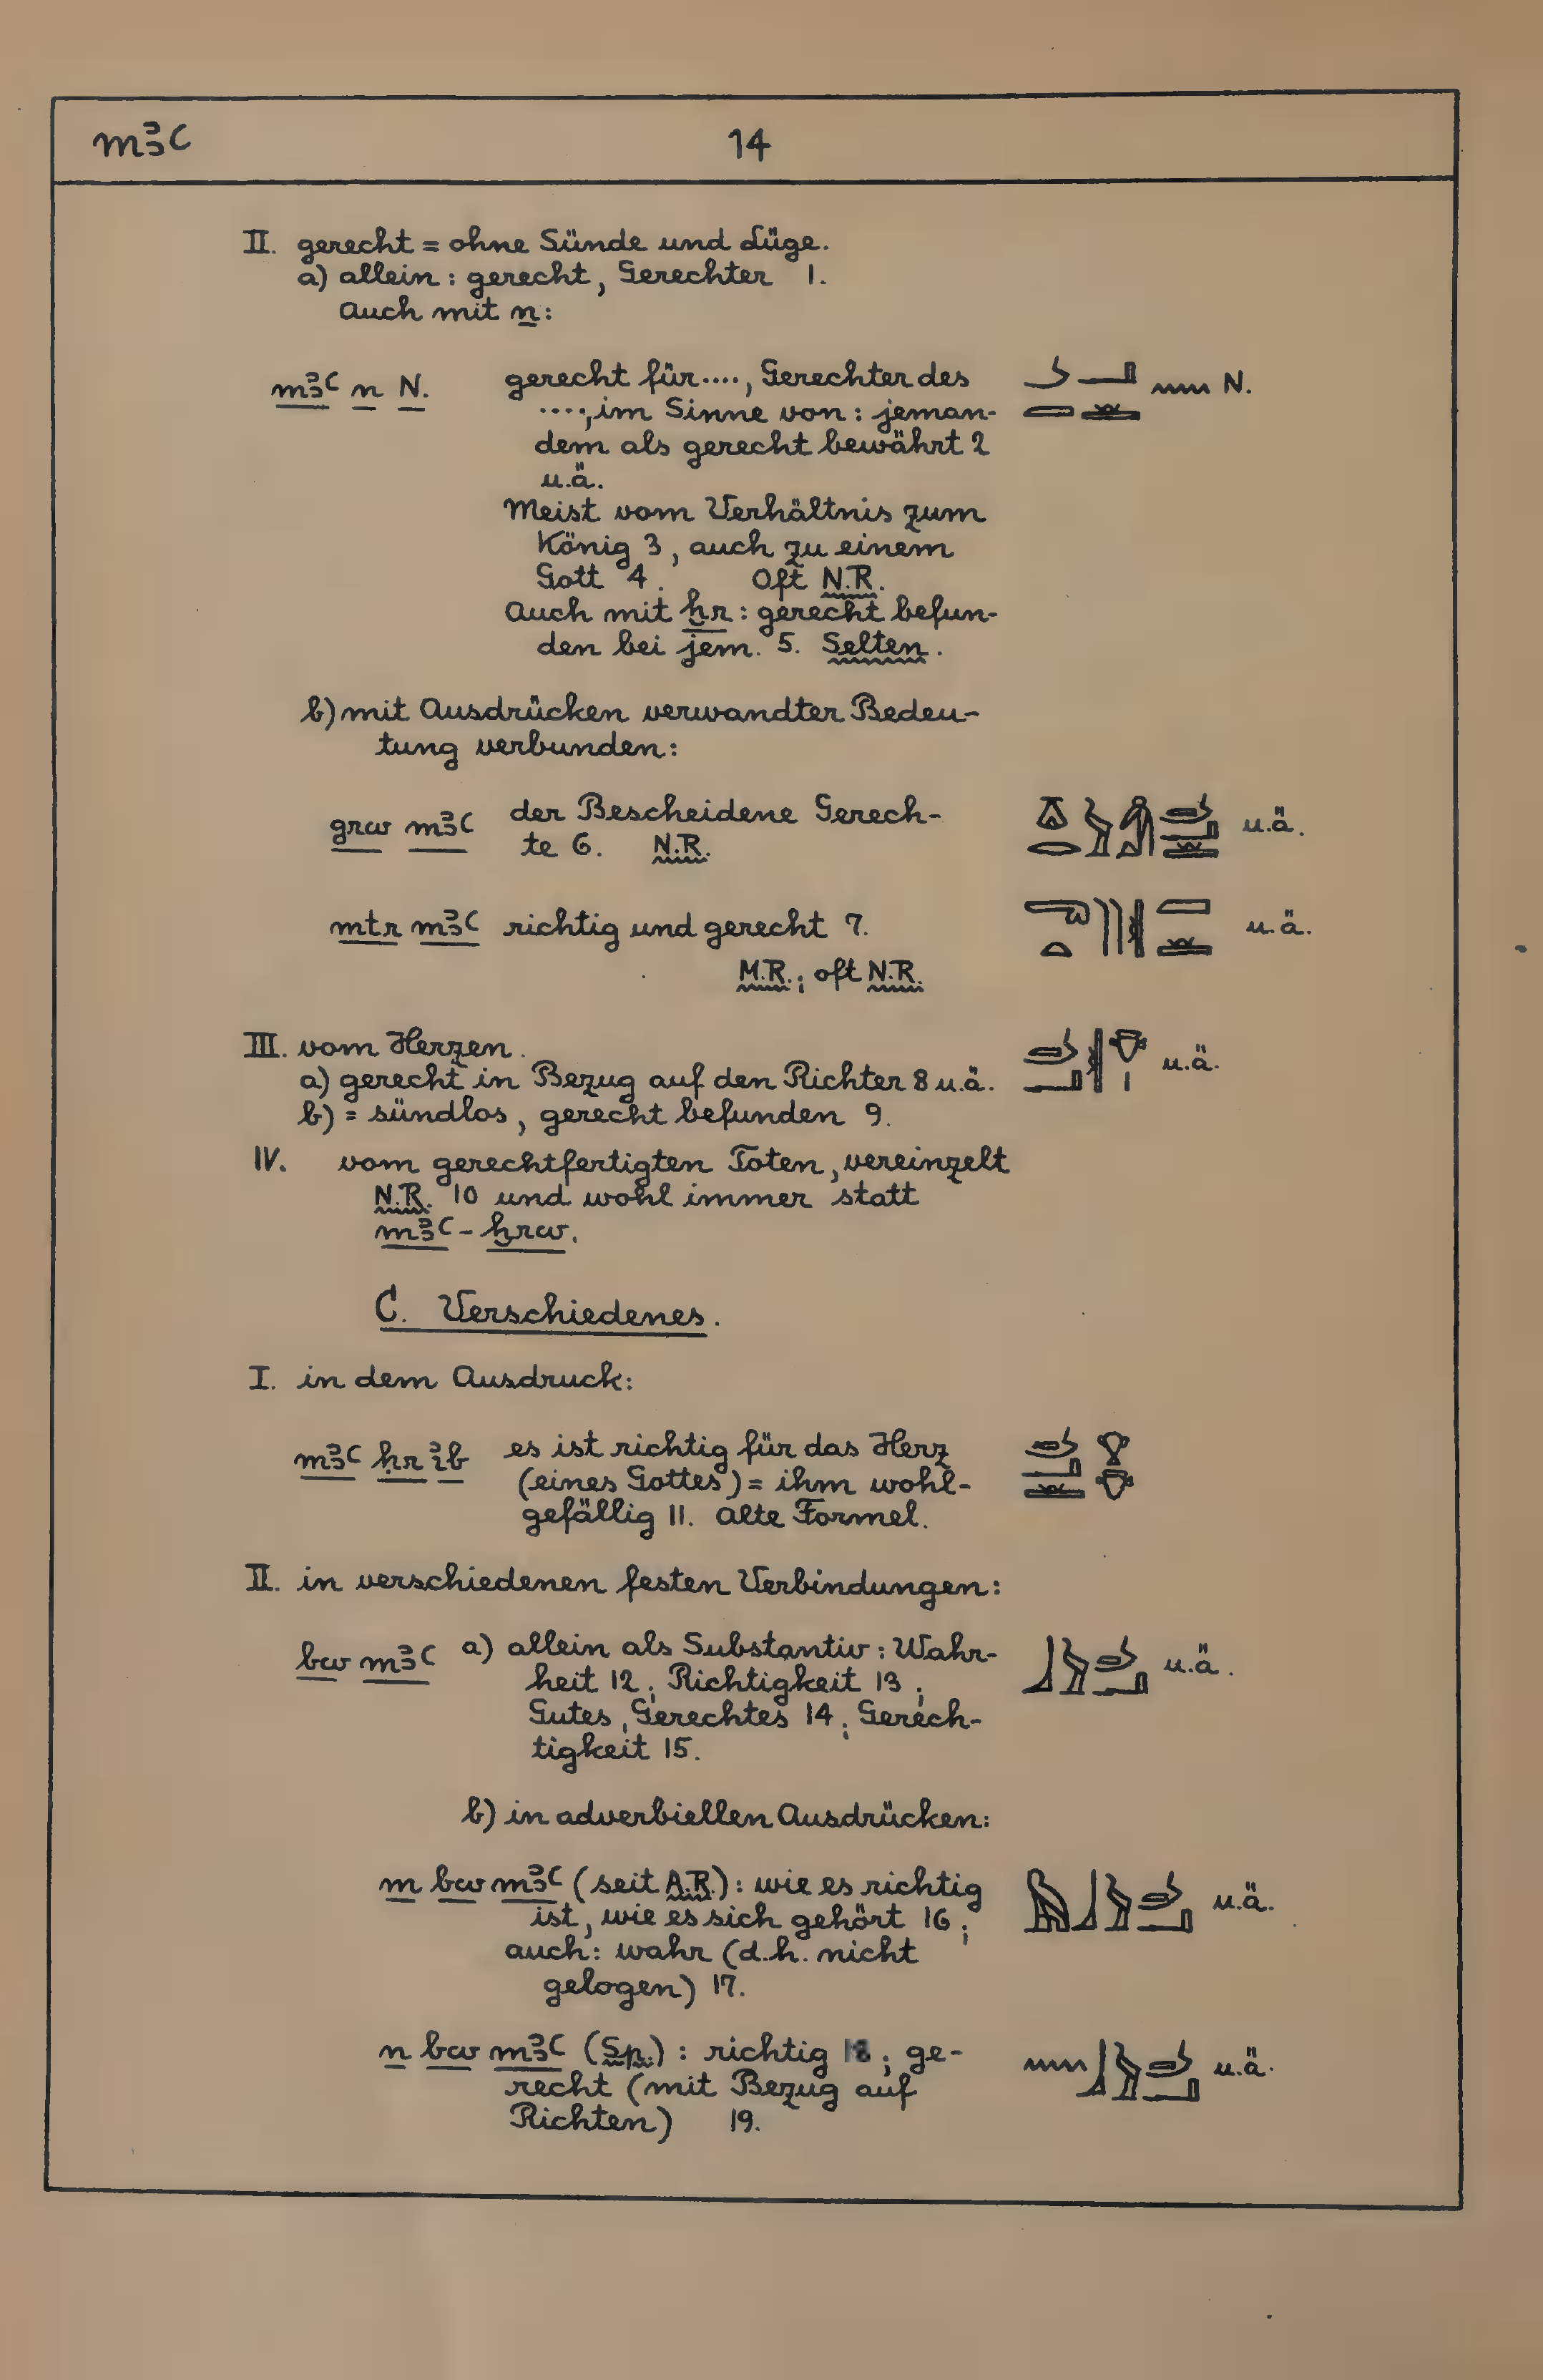 mꜣꜥ 14
II. gerecht = ohne Sünde und Lüge.
a) allein : gerecht, Gerechter 1.
Auch mit n:
mꜣꜥ n N. gerecht für...., Gerechter des N.
...., im Sinne von : jeman-
dem als gerecht bewährt 2
u.ä.
Meist vom Verhältnis zum
König 3, auch zu einem
Gott 4. Oft N.R.
Auch mit ḫr : gerecht befun-
den bei jem. 5. Selten.
b) mit Ausdrücken verwandter Bedeu-
tung verbunden:
grw mꜣꜥ der Bescheidene Gerech- u.ä.
te 6. N.R.
mtr mꜣꜥ richtig und gerecht 7. u.ä.
M.R.; oft N.R.
III. vom Herzen. u.ä.
a) gerecht in Bezug auf den Richter 8 u.ä.
b) = sündlos, gerecht befunden 9.
IV. vom gerechtfertigten Toten, vereinzelt
N.R. 10 und wohl immer statt
mꜣꜥ-ḫrw.
C. Verschiedenes.
I. in dem Ausdruck:
mꜣꜥ ḥr ı͗b es ist richtig für das Herz
(eines Gottes) = ihm wohl-
gefällig 11. Alte Formel.
II. in verschiedenen festen Verbindungen:
bw mꜣꜥ a) allein als Substantiv : Wahr- u.ä.
heit 12; Richtigkeit 13;
Gutes, Gerechtes 14; Gerech-
tigkeit 15.
b) in adverbiellen Ausdrücken:
m bw mꜣꜥ (seit A.R.) : wie es richtig u.ä.
ist, wie es sich gehört 16;
auch: wahr (d.h. nicht
gelogen) 17.
n bw mꜣꜥ (Sp.) : richtig 18; ge- u.ä.
recht (mit Bezug auf
Richten) 19.